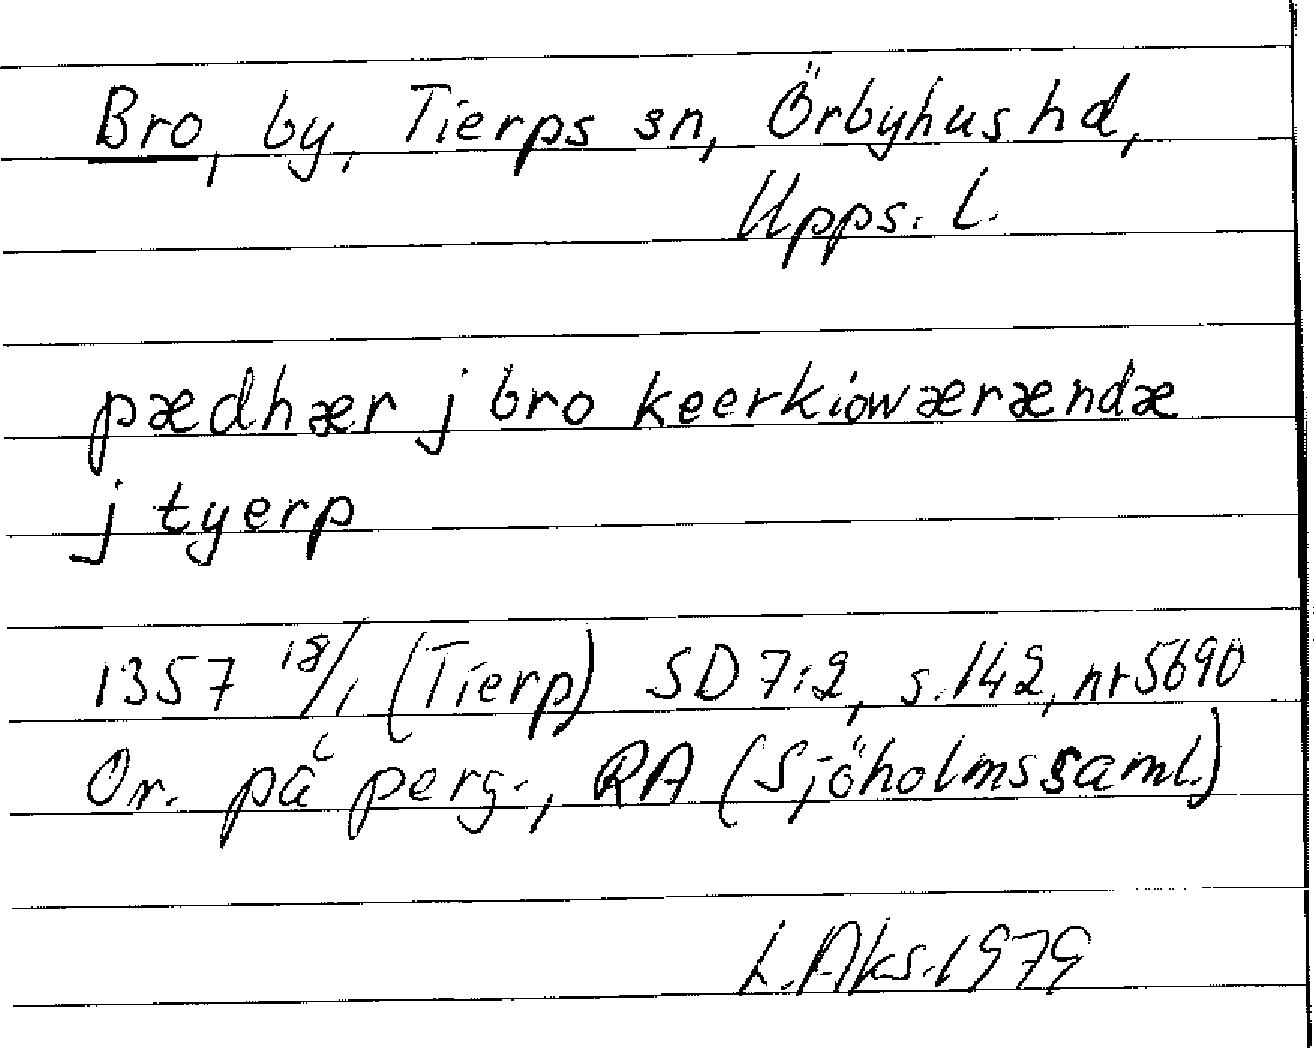 Bro, by, Tierps sn, Örbyhus hd,
Upps. l.
pædhær j bro keerkiowærændæ
j tyerp
1357 18/1 (Tierp) SD 7:2, s. 142, nr 5690
Or. på perg., RA (Sjöholmssaml.)
L. Aks. 1979